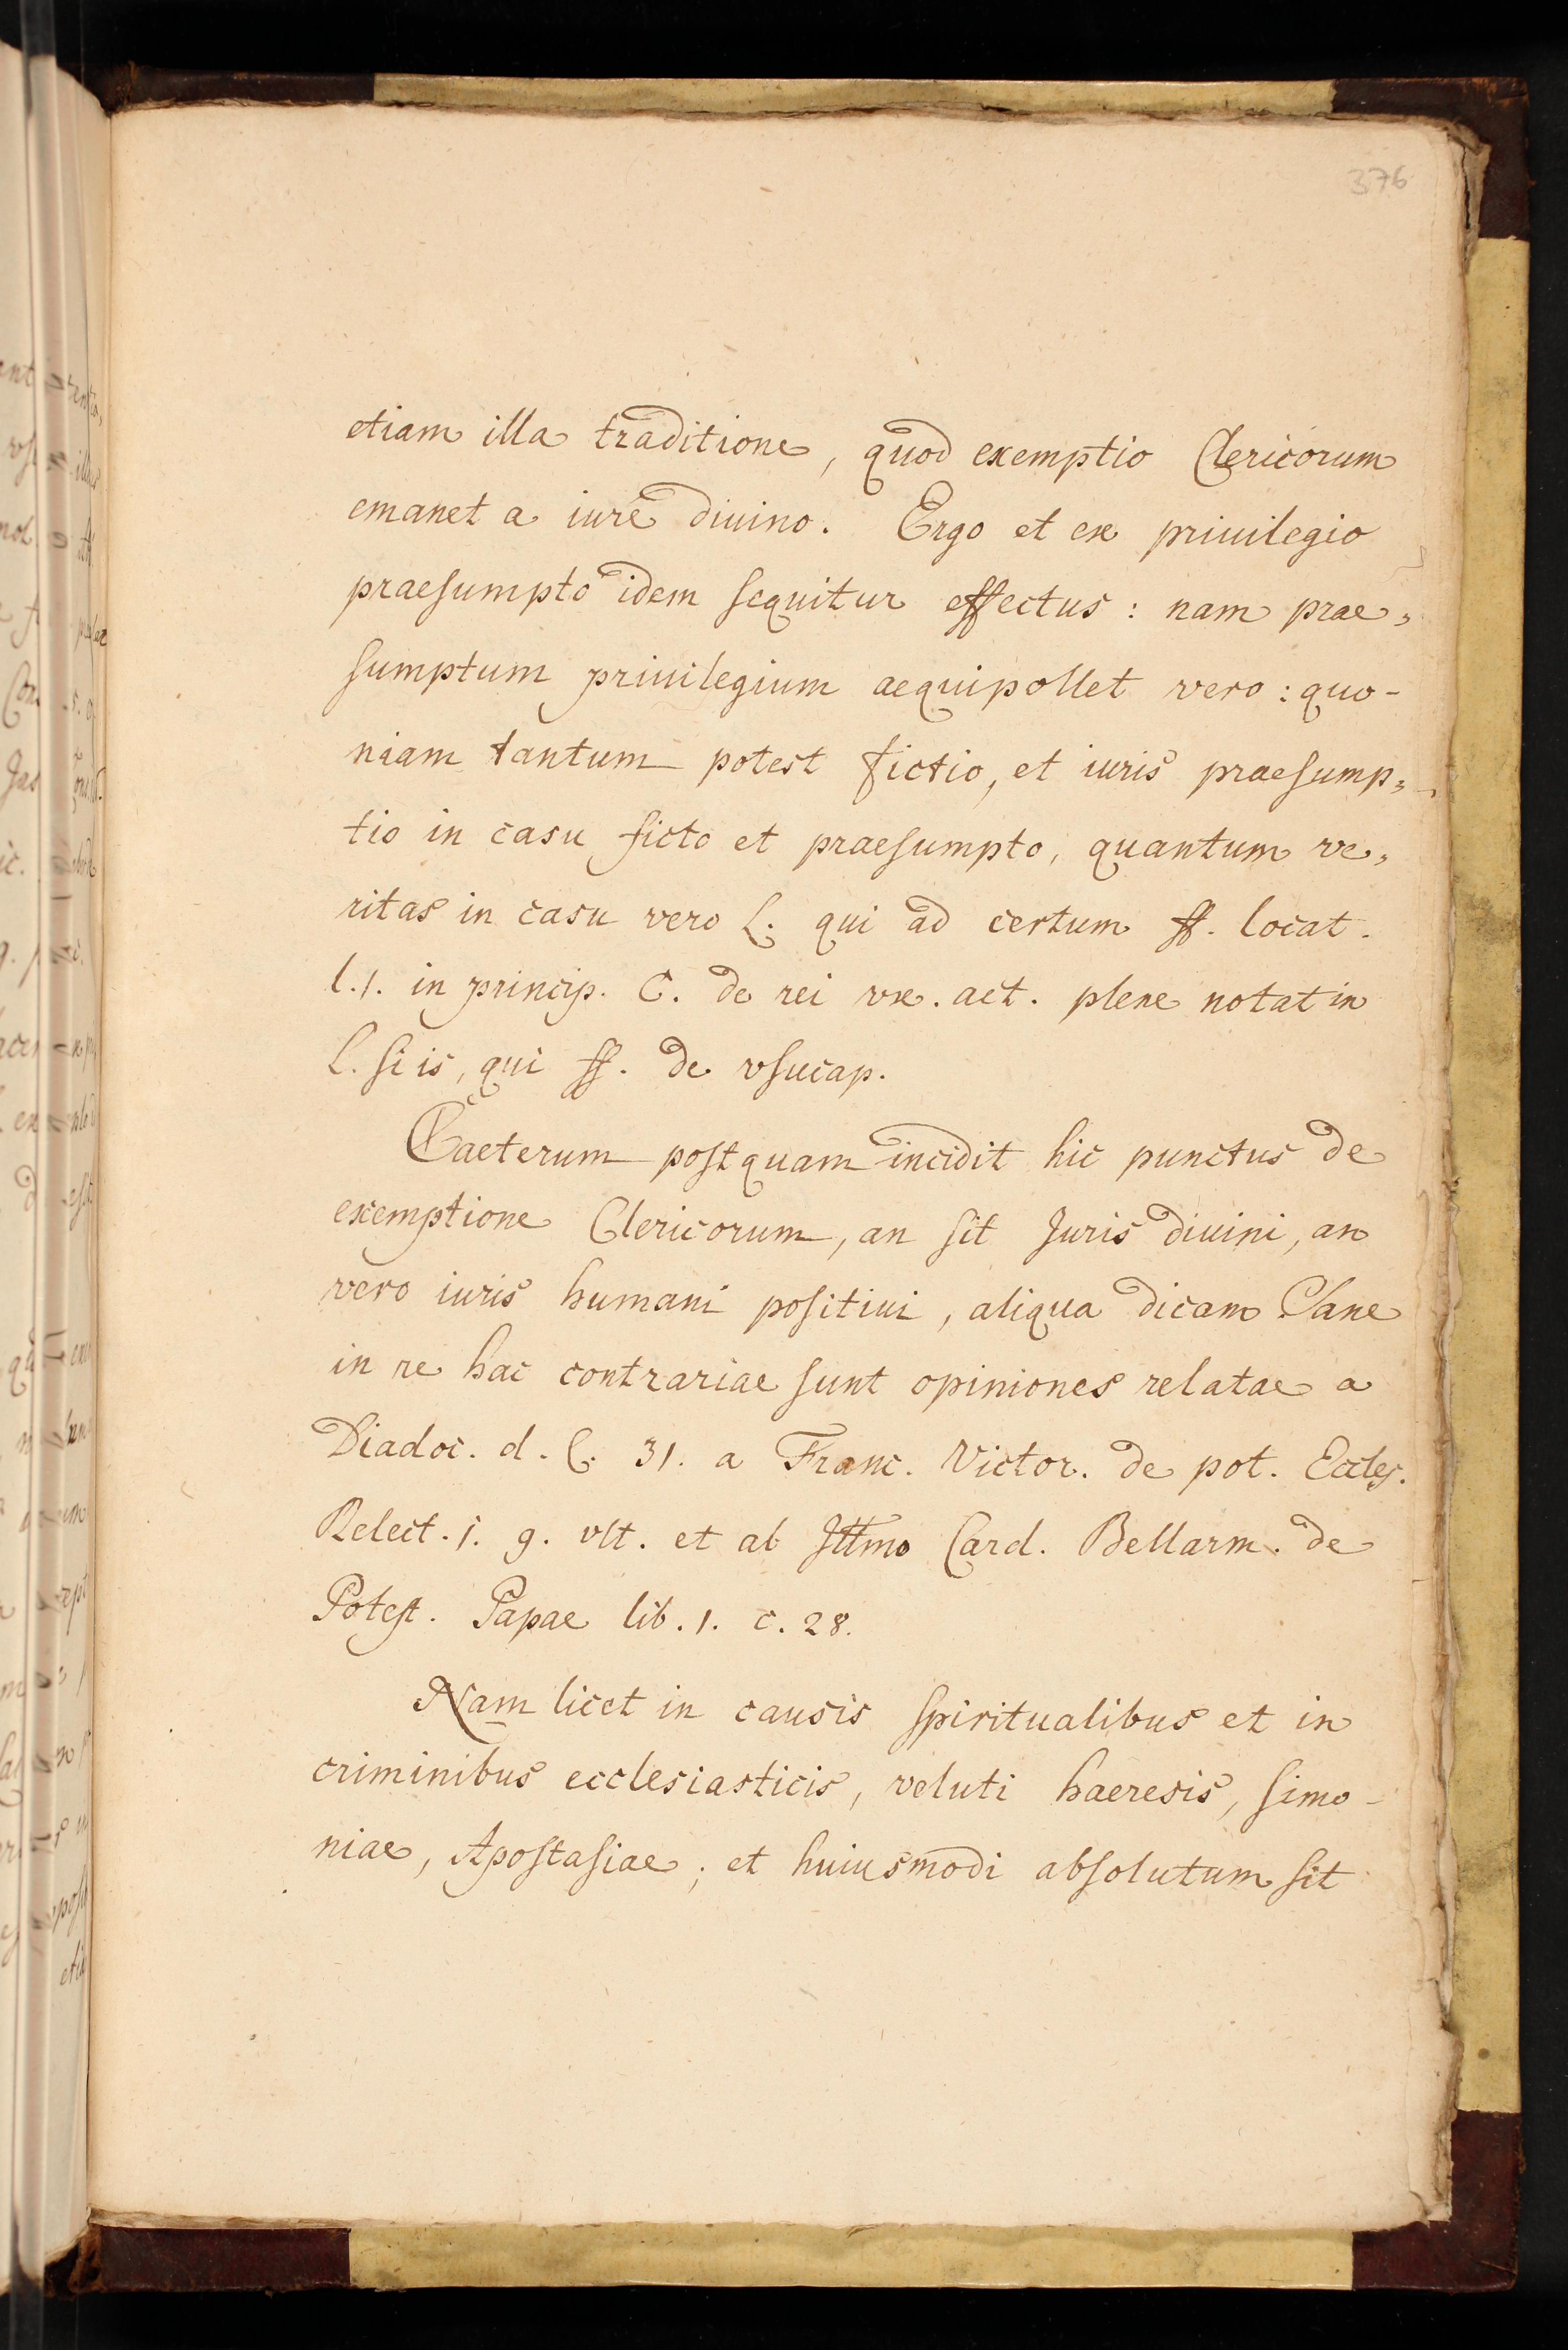 376
etiam illa traditione, quod exemptio Clericorum
emanet a iure diuino. Ergo et ex priuilegio
praesumpto idem sequitur effectus: nam prae,
sumptum priuilegium aequipollet vero: quo-
niam tantum potest fictio, et iuris praesump,
tio in casu ficto et praesumpto, quantum ve,
ritas in casu vero L. qui ad certum ff. locat.
l.1. in princip. C. de rei vx. act. plene notat in
L. si is, qui ff. de vsucap.
Caeterum postquam incidit hic punctus de
exemptione Clericorum, an sit Juris diuini, an
vero iuris humani positiui, aliqua dicam Plane
in re hac contrariae sunt opiniones relatae a
Diadoc. d. C. 31. a Franc. Victor. de pot. Eccles.
Relect. 1. q. vlt. et ab Illmo Card. Bellarm. de
Potest. Papae lib. 1. c. 28.
Nam licet in causis spiritualibus et in
criminibus ecclesiasticis, veluti haeresis, simo-
niae, Apostasiae, et huiusmodi absolutum sit